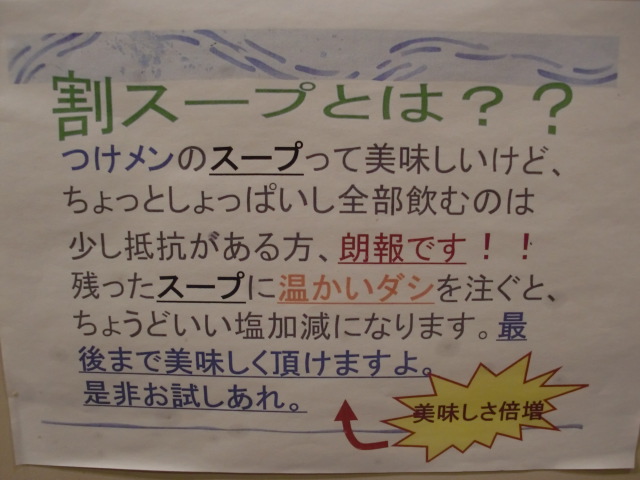 割スープとは？？
つけメンのスープって美味しいけど、
ちょっとしょっぱいし全部飲むのは
少し抵抗がある方、朗報です！！
残ったスープに温かいダシを注ぐと、
ちょうどいい塩加減になります。最
後まで美味しく頂けますよ。
是非お試しあれ。
美味しさ倍増